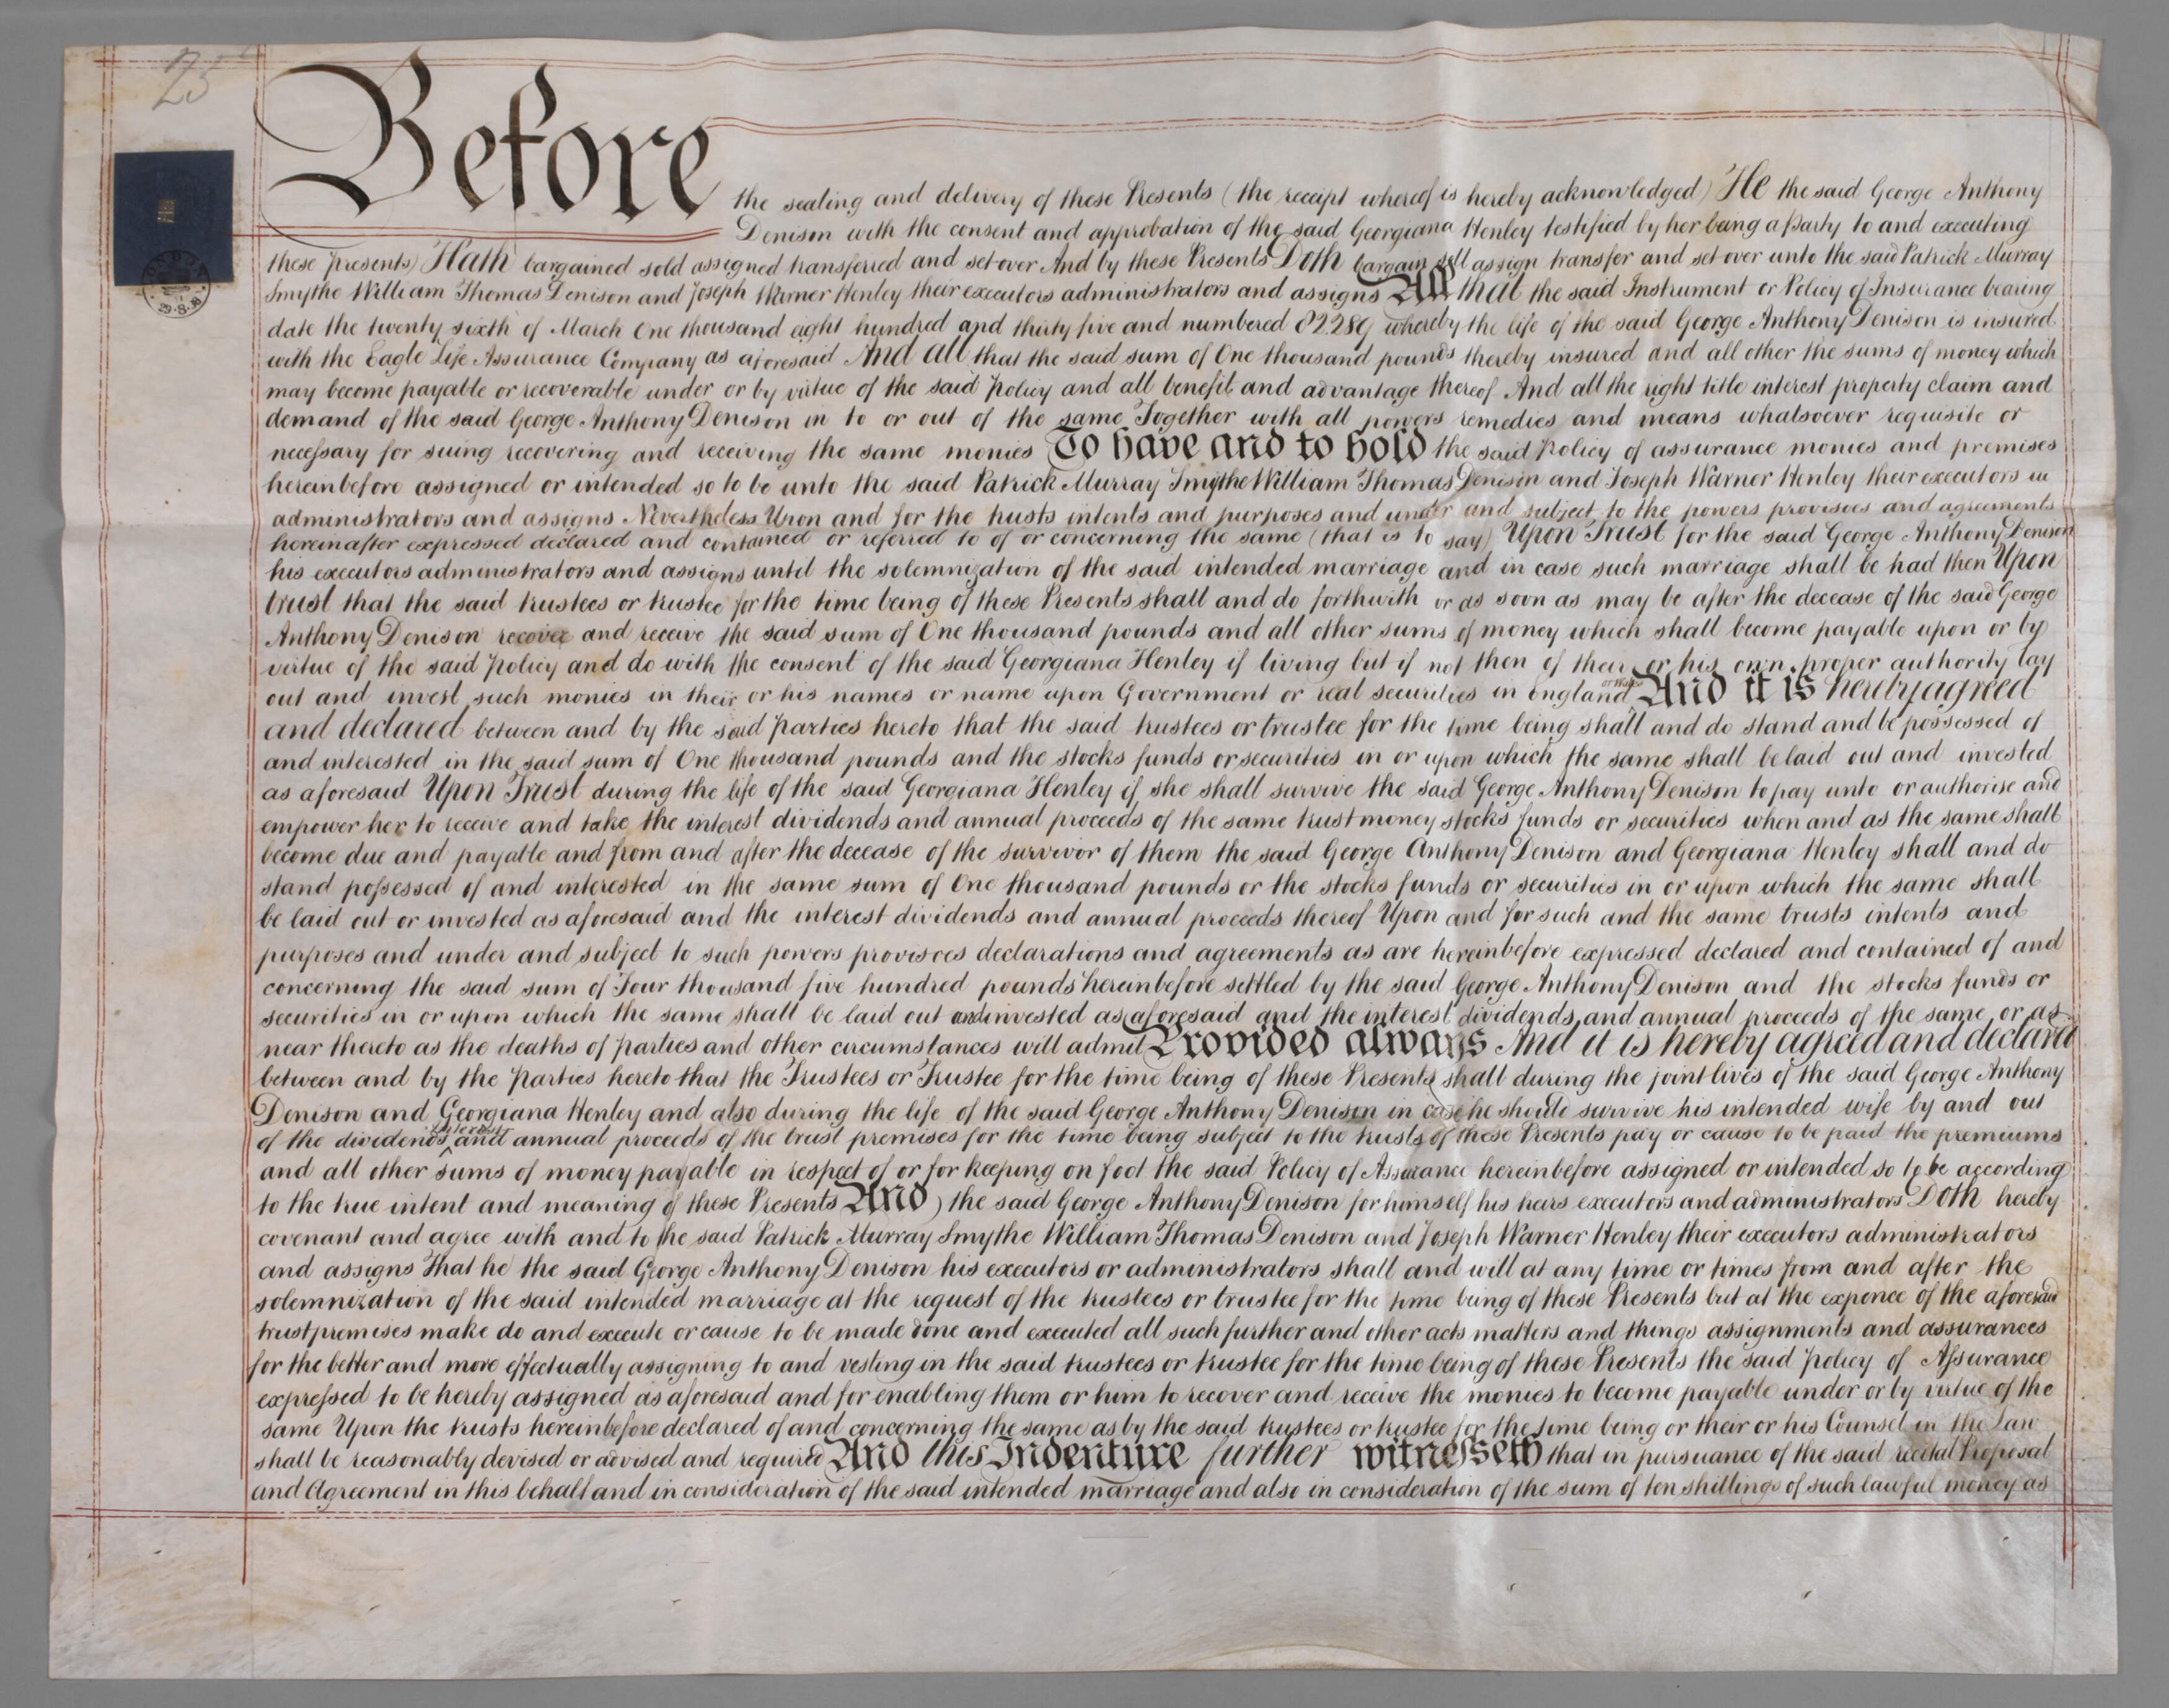 25
Before
the sealing and delivery of these Presents (the receipt whereof is hereby acknowledged) He the said George Anthony
Denison with the consent and approbation of the said Georgiana Henley testified by her being a Party to and executing
these presents) Hath bargained sold assigned transferred and set over And by these Presents Doth bargain sell assign transfer and set over unto the said Patrick Murray
Smythe William Thomas Denison and Joseph Warner Henley their executors administrators and assigns All that the said Instrument or Policy of Insurance bearing
date the twenty sixth of March One thousand eight hundred and thirty five and numbered 82289 whereby the life of the said George Anthony Denison is insured
with the Eagle Life Assurance Company as aforesaid And all that the said sum of One thousand pounds thereby insured and all other the sums of money which
may become payable or recoverable under or by virtue of the said Policy and all benefit and advantage thereof And all the right title interest property claim and
demand of the said George Anthony Denison in to or out of the same Together with all powers remedies and means whatsoever requisite or
necessary for suing recovering and receiving the same monies To have and to hold the said Policy of assurance monies and premises
hereinbefore assigned or intended so to be unto the said Patrick Murray Smythe William Thomas Denison and Joseph Warner Henley their executors
administrators and assigns Nevertheless Upon and for the trusts intents and purposes and under and subject to the powers provisoes and agreements
hereinafter expressed declared and contained or referred to of or concerning the same (that is to say) Upon Trust for the said George Anthony Denison
his executors administrators and assigns until the solemnization of the said intended marriage and in case such marriage shall be had then Upon
trust that the said trustees or trustee for the time being of these Presents shall and do forthwith or as soon as may be after the decease of the said George
Anthony Denison recover and receive the said sum of One thousand pounds and all other sums of money which shall become payable upon or by
virtue of the said Policy and do with the consent of the said Georgiana Henley if living but if not then of their or his own proper authority lay
out and invest such monies in their or his names or name upon Government or real securities in England or Wales And it is hereby agreed
and declared between and by the said Parties hereto that the said trustees or trustee for the time being shall and do stand and be possessed of
and interested in the said sum of One thousand pounds and the stocks funds or securities in or upon which the same shall be laid out and invested
as aforesaid Upon Trust during the life of the said Georgiana Henley if she shall survive the said George Anthony Denison to pay unto or authorise and
empower her to receive and take the interest dividends and annual proceeds of the same trust money stocks funds or securities when and as the same shall
become due and payable and from and after the decease of the survivor of them the said George Anthony Denison and Georgiana Henley shall and do
stand possessed of and interested in the same sum of One thousand pounds or the stocks funds or securities in or upon which the same shall
be laid out or invested as aforesaid and the interest dividends and annual proceeds thereof Upon and for such and the same trusts intents and
purposes and under and subject to such powers provisoes declarations and agreements as are hereinbefore expressed declared and contained of and
concerning the said sum of Four thousand five hundred pounds hereinbefore settled by the said George Anthony Denison and the stocks funds or
securities in or upon which the same shall be laid out and invested as aforesaid and the interest dividends and annual proceeds of the same or as
near thereto as the deaths of parties and other circumstances will admit Provided always And it is hereby agreed and declared
between and by the Parties hereto that the Trustees or Trustee for the time being of these Presents shall during the joint lives of the said George Anthony
Denison and Georgiana Henley and also during the life of the said George Anthony Denison in case he should survive his intended wife by and out
of the dividends interest and annual proceeds of the trust premises for the time being subject to the trusts of these Presents pay or cause to be paid the premiums
and all other sums of money payable in respect of or for keeping on foot the said Policy of Assurance hereinbefore assigned or intended so to be according
to the true intent and meaning of these Presents And the said George Anthony Denison for himself his heirs executors and administrators Doth hereby
covenant and agree with and to the said Patrick Murray Smythe William Thomas Denison and Joseph Warner Henley their executors administrators
and assigns That he the said George Anthony Denison his executors or administrators shall and will at any time or times from and after the
solemnization of the said intended marriage at the request of the trustees or trustee for the time being of these Presents but at the expence of the aforesaid
trust premises make do and execute or cause to be made done and executed all such further and other acts matters and things assignments and assurances
for the better and more effectually assigning to and vesting in the said trustees or trustee for the time being of these Presents the said Policy of Assurance
expressed to be hereby assigned as aforesaid and for enabling them or him to recover and receive the monies to become payable under or by virtue of the
same Upon the trusts hereinbefore declared of and concerning the same as by the said trustees or trustee for the time being or their or his Counsel in the Law
shall be reasonably devised or advised and required And this Indenture further witnesseth that in pursuance of the said recited Proposal
and Agreement in this behalf and in consideration of the said intended marriage and also in consideration of the sum of ten shillings of such lawful money as